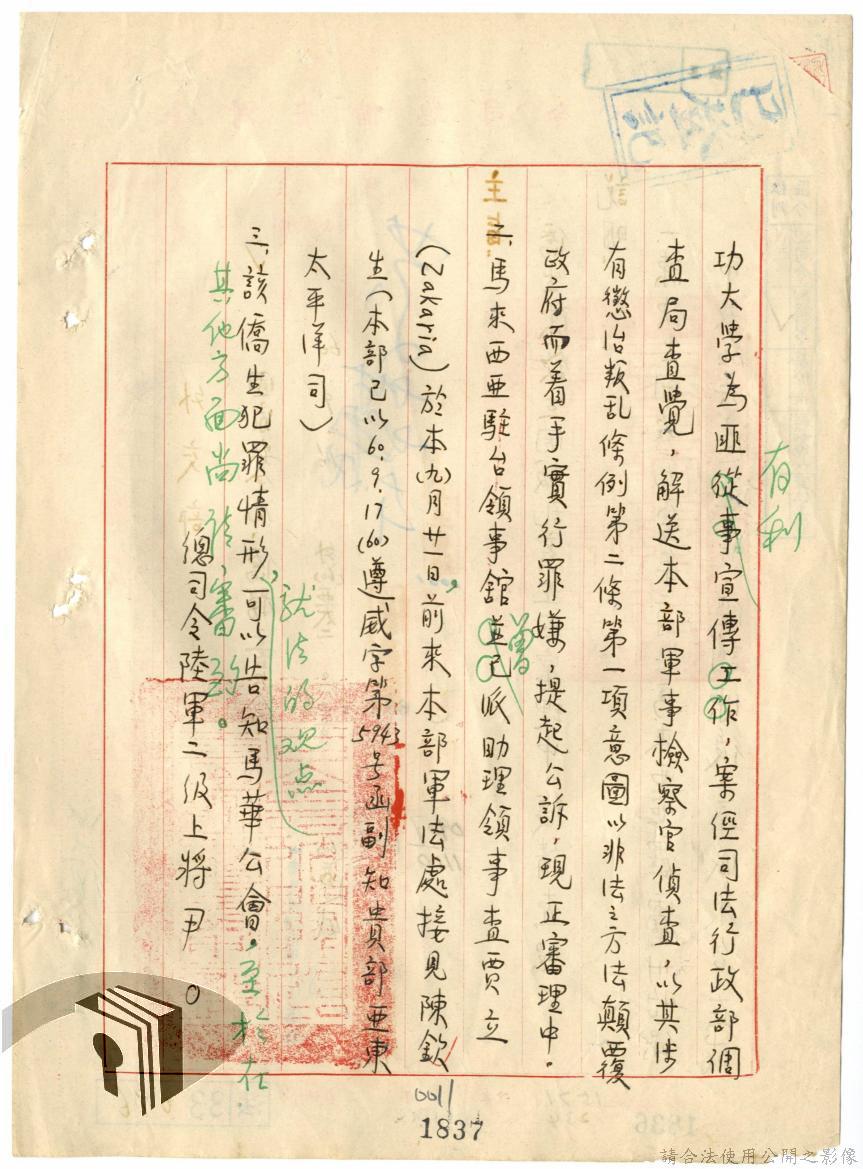 功大學為匪從事宣傳工作，案經司法行政部調
有利
查局查覺，解送本部軍事檢察官偵查，以其涉
有懲治叛乱條例第二條第一項意圖以非法之方法顛覆
政府而着手實行罪嫌，提起公訴，現正審理中。
二、馬來西亞駐台領事館並已派助理領事查賈立
曾
(Zakaria)於本(九)月廿一日前來本部軍法處接見陳欽
生(本部已以60.9.17(60)遵威字第5943号函副知貴部亞東
太平洋司)
就法的观点
三、該僑生犯罪情形，可以告知馬華公會。至於在
其他方面尚請審酌。
總司令陸軍二級上將尹○
0011
1837
請合法使用公開之影像